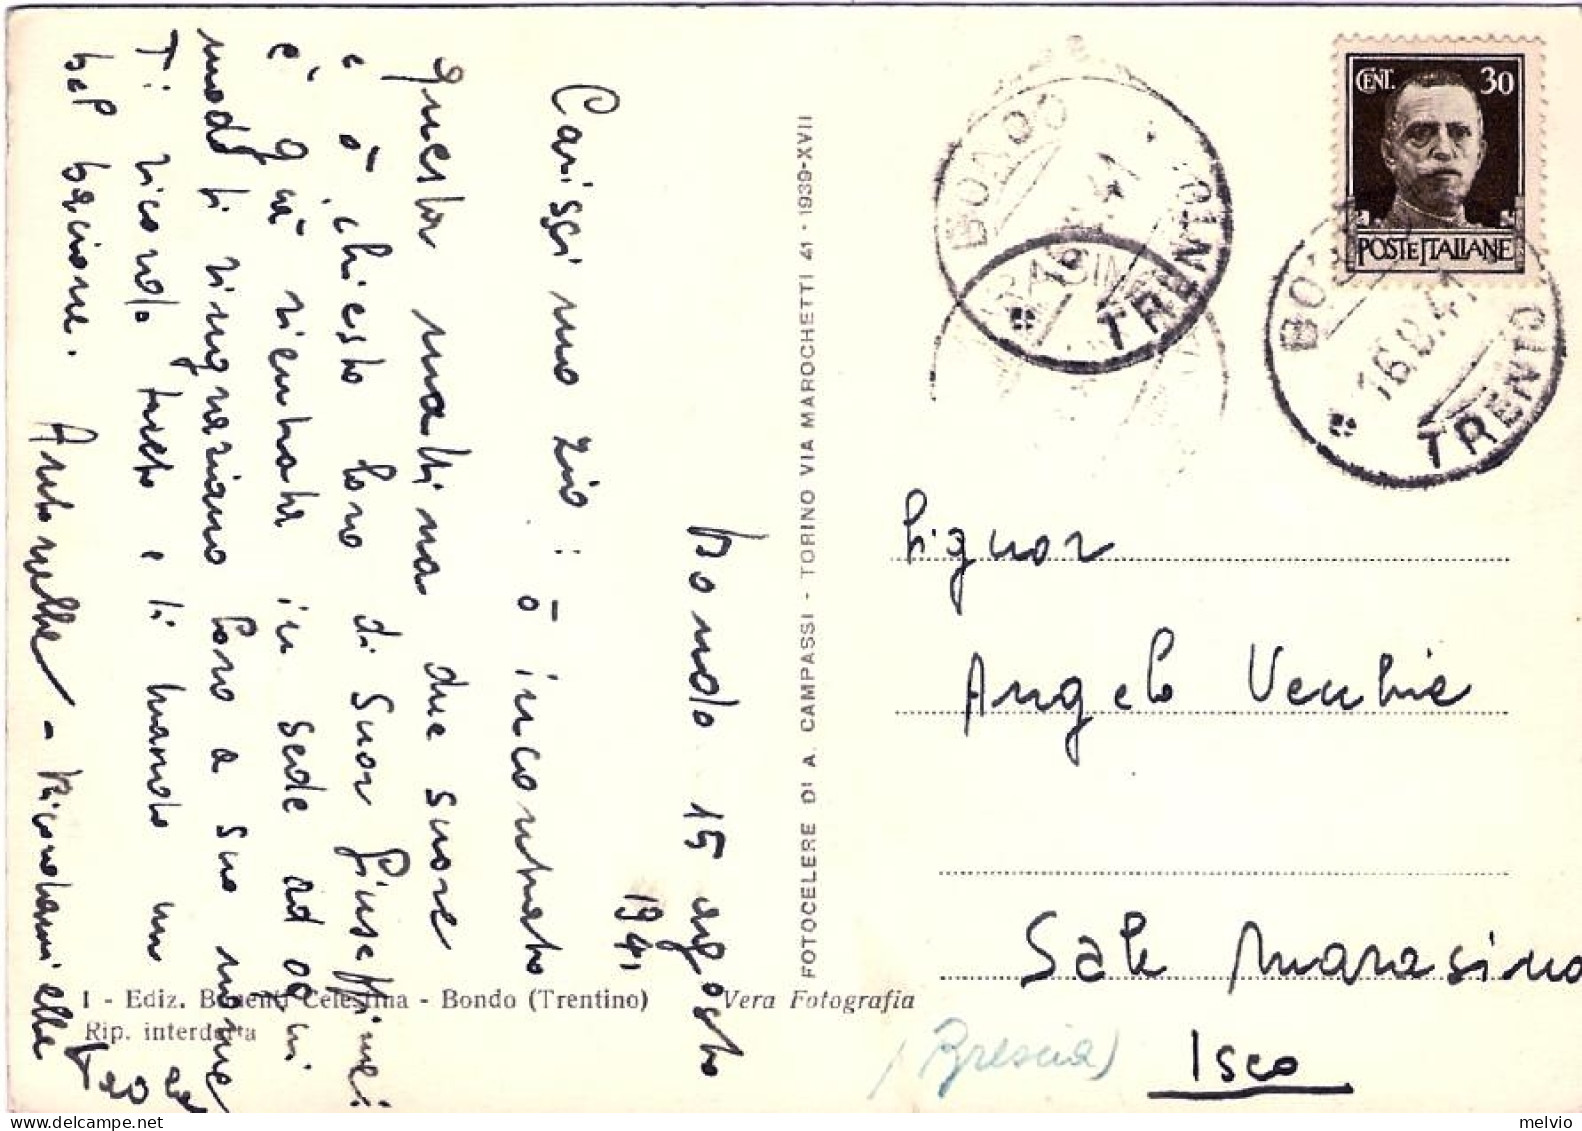 Bondo 15 agosto
1941
Carissimo zio: ò incontrato
questa mattina due suore
e ò chiesto loro di Suor Giuseppina
è già rientrata in sede ad ogni
modo ti ringraziano loro a suo nome
Ti ricordo tutto e ti mando un
bel bacione. Antonella - Ricordami alla
FOTOCELERE DI A. CAMPASSI - TORINO VIA MAROCHETTI 41 - 1939-XVII
1 - Ediz. Celestina - Bondo (Trentino)
Vera Fotografia
Rip. interdetta
CENT. 30
POSTE ITALIANE
BONDO
41
TRENTO
BONDO
16.8.41
TRENTO
Signor
Angelo Vecchie
Sale Marasino
Iseo
(Brescia)
melvio